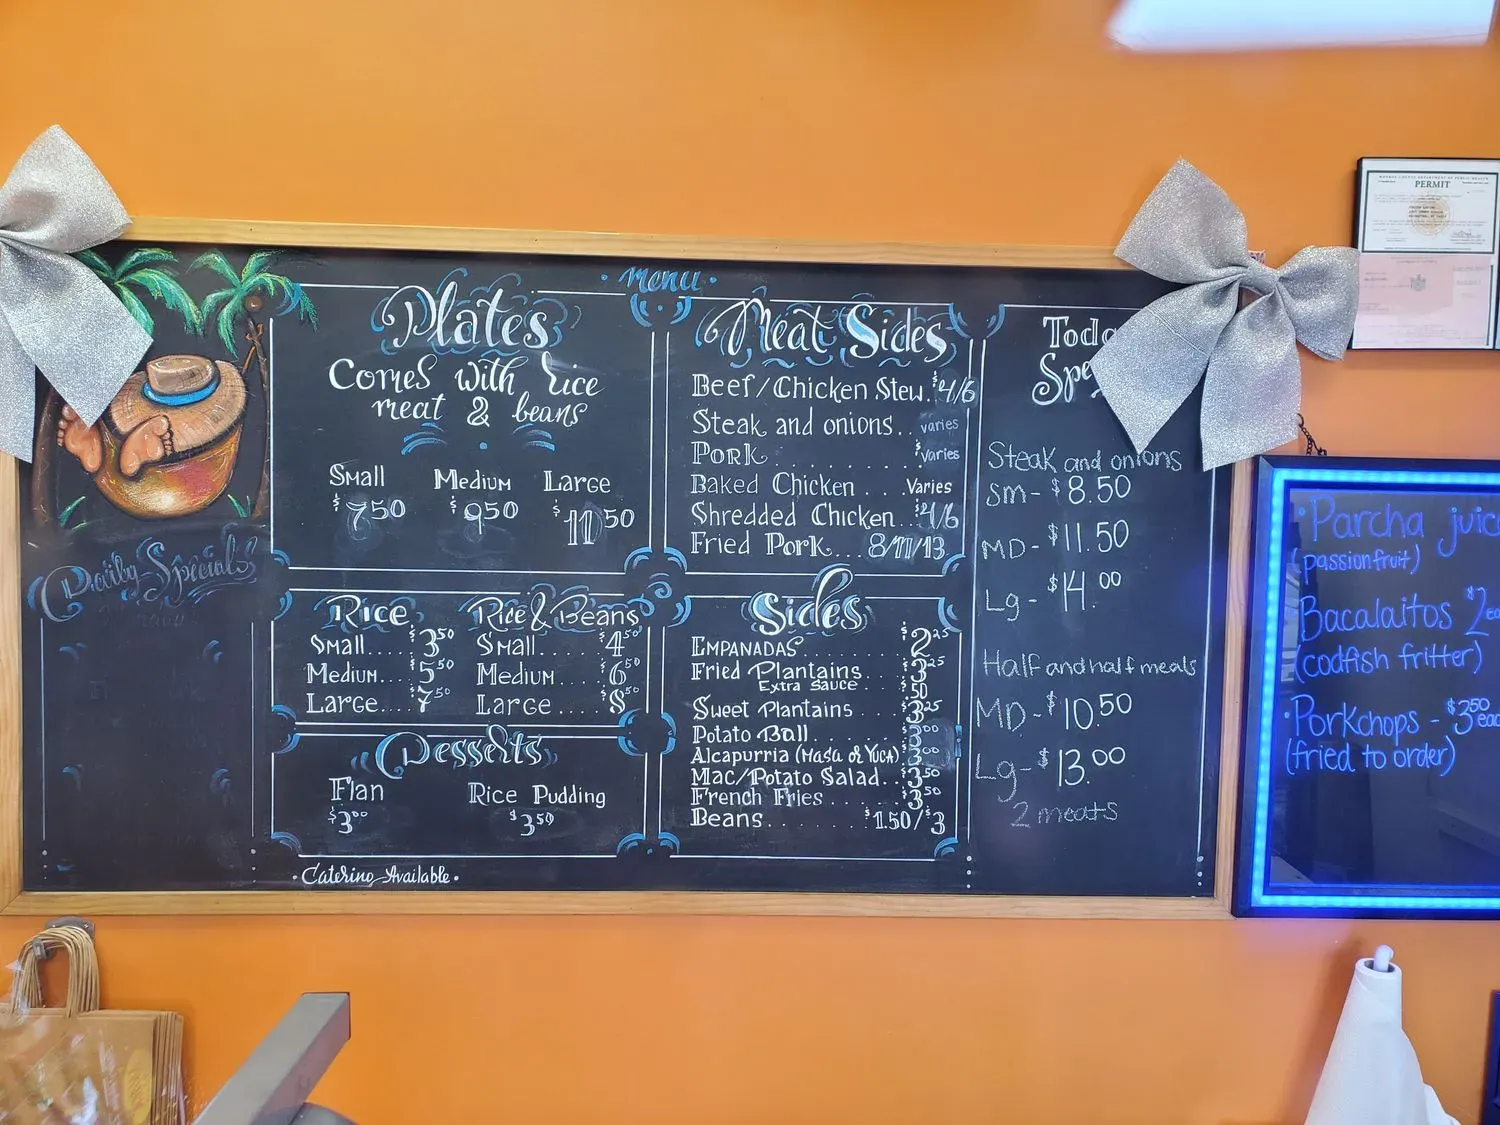 menu
Plates
Comes with rice
meat & beans
Small Medium Large
$7.50 $9.50 $11.50
Daily Specials
Rice
Small....$3.50
Medium...$5.50
Large....$7.50
Rice & Beans
Small....$4.50
Medium....$6.50
Large....$8.50
Desserts
Flan
$3.00
Rice Pudding
$3.50
Catering Available
Meat Sides
Beef/Chicken Stew.$4/6
Steak and onions..varies
Pork.......$varies
Baked Chicken...Varies
Shredded Chicken..$4/6
Fried Pork...8/11/13
Sides
Empanadas.......$2.25
Fried Plantains...$3.25
Extra Sauce.$.50
Sweet Plantains...$3.25
Potato Ball....$3.00
Alcapurria (Masa or Yuca)$3.00
Mac/Potato Salad..$3.50
French Fries....$3.50
Beans......$1.50/$3
Steak and onions
Sm-$8.50
MD-$11.50
Lg-$14.00
Half and half meals
MD-$10.50
Lg-$13.00
2 meats
PERMIT
Parcha
(passionfruit)
Bacalaitos $2
(codfish fritter)
Porkchops - $3.50
(fried to order)